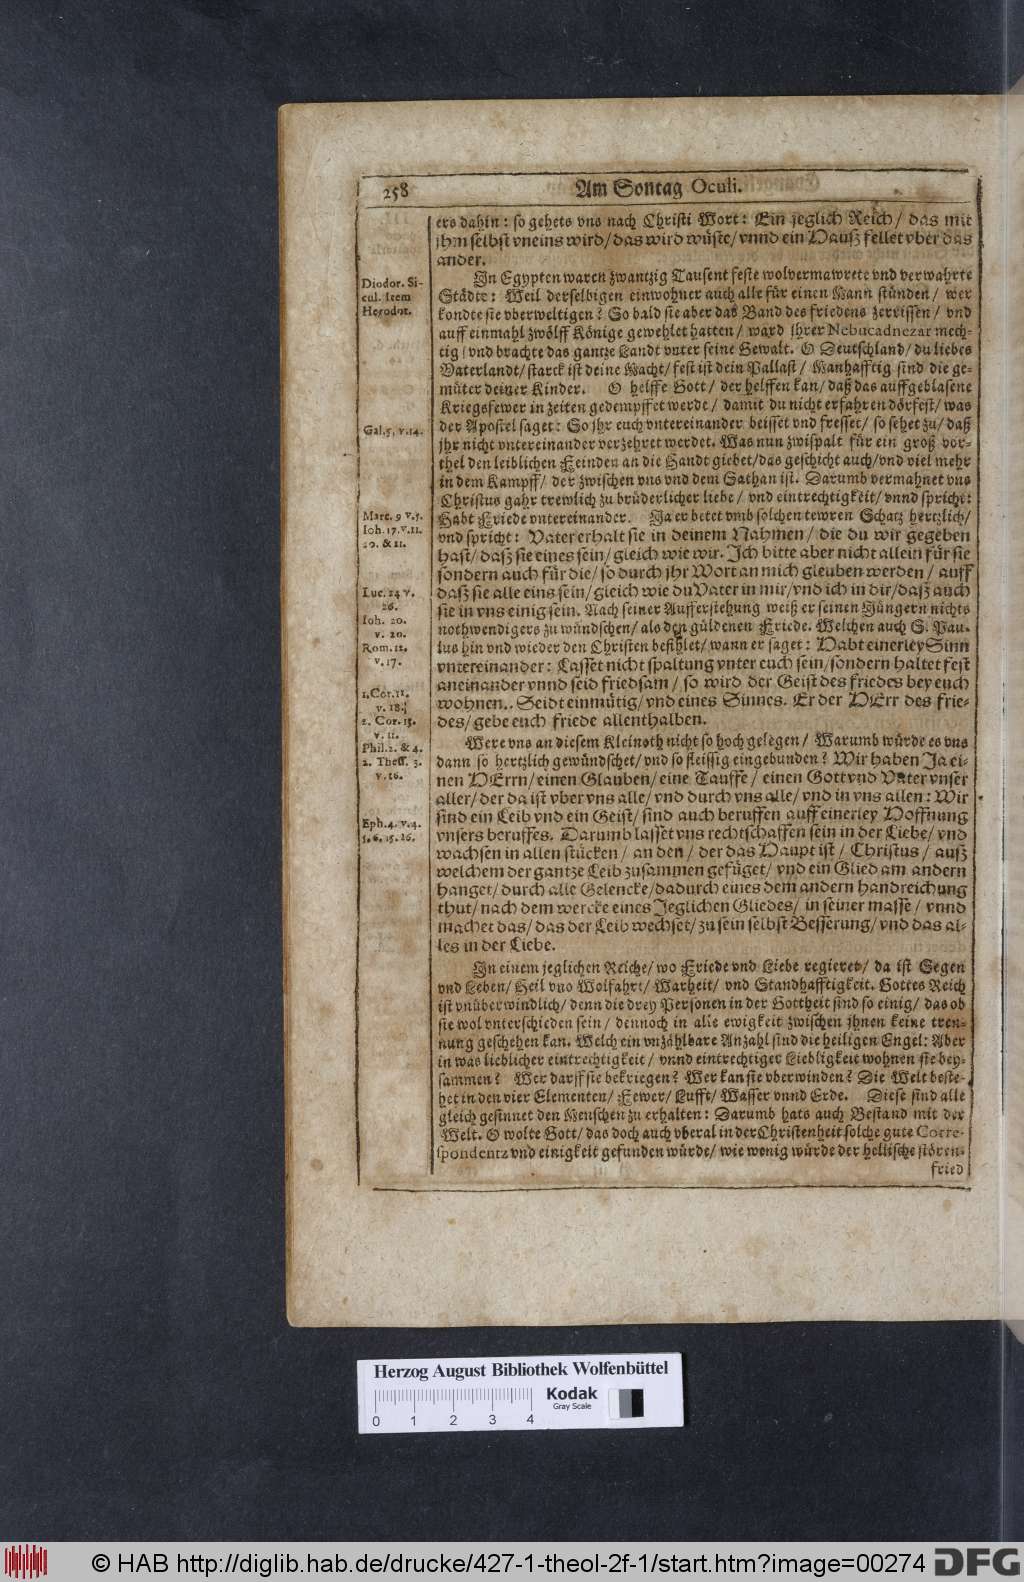 258
Am Sontag Oculi.
ers dahin: so gehets vns nach Christi Wort: Ein jeglich Reich/ das mit
jhm selbst vneins wird/ das wird wüste/ vnnd ein Hauß fellet vber das
ander.
Diodor. Si-
cul. Item
Herodot.
In Egypten waren zwantzig Tausent feste wolvermawrete vnd verwahrte
Städte: Weil derselbigen einwohner auch alle für einen Mann stünden/ wer
kondte sie vberweltigen? So bald sie aber das Band des friedens zerrissen/ vnd
auff einmahl zwölff Könige gewehlet hatten/ ward jhrer Nebucadnezar mech-
tig/ vnd brachte das gantze Landt vnter seine Gewalt. O Deutschland/ du liebes
Vaterlandt/ starck ist deine Macht/ fest ist dein Pallast/ Manhafftig sind die ge-
müter deiner Kinder. O helffe Gott/ der helffen kan/ daß das auffgeblasene
Kriegsfewer in zeiten gedempffet werde/ damit du nicht erfahren dörfest/ was
Gal. 5. v. 14.
der Apostel saget: So jhr euch vntereinander beisset vnd fresset/ so sehet zu/ daß
jhr nicht vntereinander verzehret werdet. Was nun zwispalt für ein groß vor-
thel den leiblichen Feinden an die Handt giebet/ das geschicht auch/ vnd viel mehr
in dem Kampff/ der zwischen vns vnd dem Sathan ist. Darumb vermahnet vns
Christus gahr trewlich zu brüderlicher liebe/ vnd eintrechtigkeit/ vnnd spricht:
Marc. 9 v. 5.
Ioh. 17. v. 11.
20. & 21.
Habt Friede vntereinander. Ja er betet vmb solchen tewren Schatz hertzlich/
vnd spricht: Vater erhalt sie in deinem Nahmen/ die du wir gegeben
hast/ daß sie eines sein/ gleich wie wir. Ich bitte aber nicht allein für sie
sondern auch für die/ so durch jhr Wort an mich gleuben werden/ auff
Luc. 24 v.
26.
Ioh. 20.
v. 20.
daß sie alle eins sein/ gleich wie du Vater in mir/ vnd ich in dir/ daß auch
sie in vns einig sein. Nach seiner Aufferstehung weiß er seinen Jüngern nichts
nothwendigers zu wündschen/ als den güldenen Friede. Welchen auch S. Pau-
Rom. 12.
v. 17.
lus hin vnd wieder den Christen befihlet/ wann er saget: Habt einerley Sinn
vntereinander: Lasset nicht spaltung vnter euch sein/ sondern haltet fest
aneinander vnnd seid friedsam/ so wird der Geist des friedes bey euch
1. Cor. 11.
v. 18.
2. Cor. 13.
v. 11.
wohnen. Seidt einmütig/ vnd eines Sinnes. Er der HErr des frie-
des/ gebe euch friede allenthalben.
Phil. 2. & 4.
2. Thess. 3.
v. 16.
Were vns an diesem Kleinoth nicht so hoch gelegen/ Warumb würde es vns
dann so hertzlich gewündschet/ vnd so fleissig eingebunden? Wir haben Ja ei-
nen HErrn/ einen Glauben/ eine Tauffe/ einen Gott vnd Vater vnser
aller/ der da ist vber vns alle/ vnd durch vns alle/ vnd in vns allen: Wir
Eph. 4. v. 4.
5. 6. 15. 16.
sind ein Leib vnd ein Geist/ sind auch beruffen auff einerley Hoffnung
vnsers beruffes. Darumb lasset vns rechtschaffen sein in der Liebe/ vnd
wachsen in allen stücken/ an den/ der das Haupt ist/ Christus/ auß
welchem der gantze Leib zusammen gefüget/ vnd ein Glied am andern
hanget/ durch alle Gelencke/ dadurch eines dem andern handreichung
thut/ nach dem wercke eines Jeglichen Gliedes/ in seiner masse/ vnnd
machet das/ das der Leib wechset/ zu sein selbst Besserung/ vnd das al-
les in der Liebe.
In einem jeglichen Reiche/ wo Friede vnd Liebe regieret/ da ist Segen
vnd Leben/ Heil vnd Wolfahrt/ Warheit/ vnd Standhafftigkeit. Gottes Reich
ist vnüberwindlich/ denn die drey Personen in der Gottheit sind so einig/ das ob
sie wol vnterschieden sein/ dennoch in alle ewigkeit zwischen jhnen keine tren-
nung geschehen kan. Welch ein vnzählbare Anzahl sind die heiligen Engel: Aber
in was lieblicher eintrechtigkeit/ vnnd eintrechtiger Liebligkeit wohnen sie bey-
sammen? Wer darff sie bekriegen? Wer kan sie vberwinden? Die Welt beste-
het in den vier Elementen/ Fewer/ Lufft/ Wasser vnnd Erde. Diese sind alle
gleich gesinnet den Menschen zu erhalten: Darumb hats auch Bestand mit der
Welt. O wolte Gott/ das doch auch vberal in der Christenheit solche gute Corre-
spondentz vnd einigkeit gefunden würde/ wie wenig würde der hellische stören-
fried
Herzog August Bibliothek Wolfenbüttel
Kodak
Gray Scale
0 1 2 3 4
© HAB http://diglib.hab.de/drucke/427-1-theol-2f-1/start.htm?image=00274
DFG